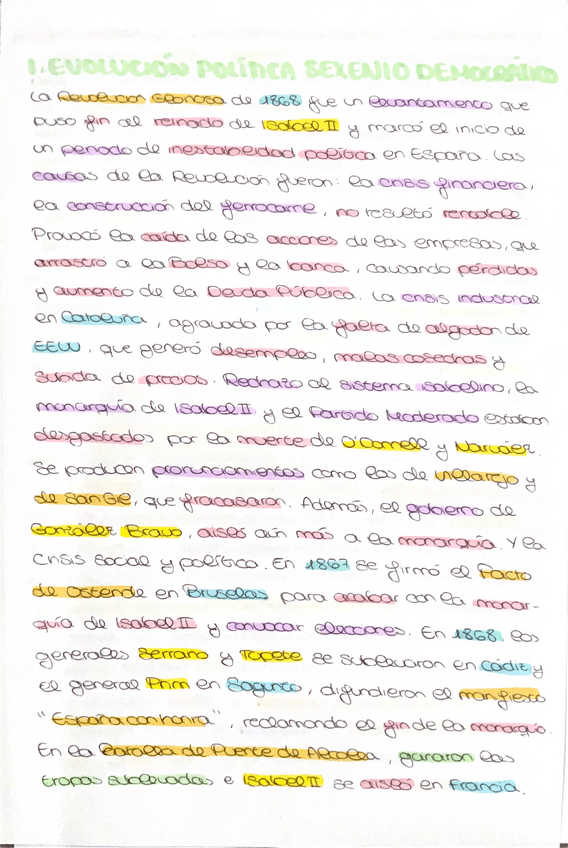 1. EVOLUCIÓN POLÍTICA SEXENIO DEMOCRÁTICO
La Revolución Gloriosa de 1868 fue un levantamiento que
puso fin al reinado de Isabel II y marcó el inicio de
un periodo de inestabilidad política en España. Las
causas de la Revolución fueron: la crisis financiera,
la construcción del ferrocarril, no resultó rentable.
Provocó la caída de las acciones de las empresas, que
arrastró a la Bolsa y la banca, causando pérdidas
y aumento de la Deuda Pública. La crisis industrial
en Cataluña, agravado por la falta de algodón de
EEUU, que generó desempleo, malas cosechas y
subida de precios. Rechazo al sistema isabelino, la
monarquía de Isabel II y el Partido Moderado estaban
desgastados por la muerte de O'Donnell y Narváez.
Se producen pronunciamientos como los de Villarejo y
de San Gil, que fracasaron. Además, el gobierno de
González Bravo, aisló aún más a la monarquía. Y la
crisis social y política. En 1867 se firmó el Pacto
de Ostende en Bruselas para acabar con la monar-
quía de Isabel II y convocar elecciones. En 1868, los
generales Serrano y Topete se sublevaron en Cádiz y
el general Prim en Sagunto, difundieron el manifiesto
"España con honra", reclamando el fin de la monarquía.
En la Batalla de Puente de Alcolea, ganaron las
tropas sublevadas e Isabel II se aisló en Francia.